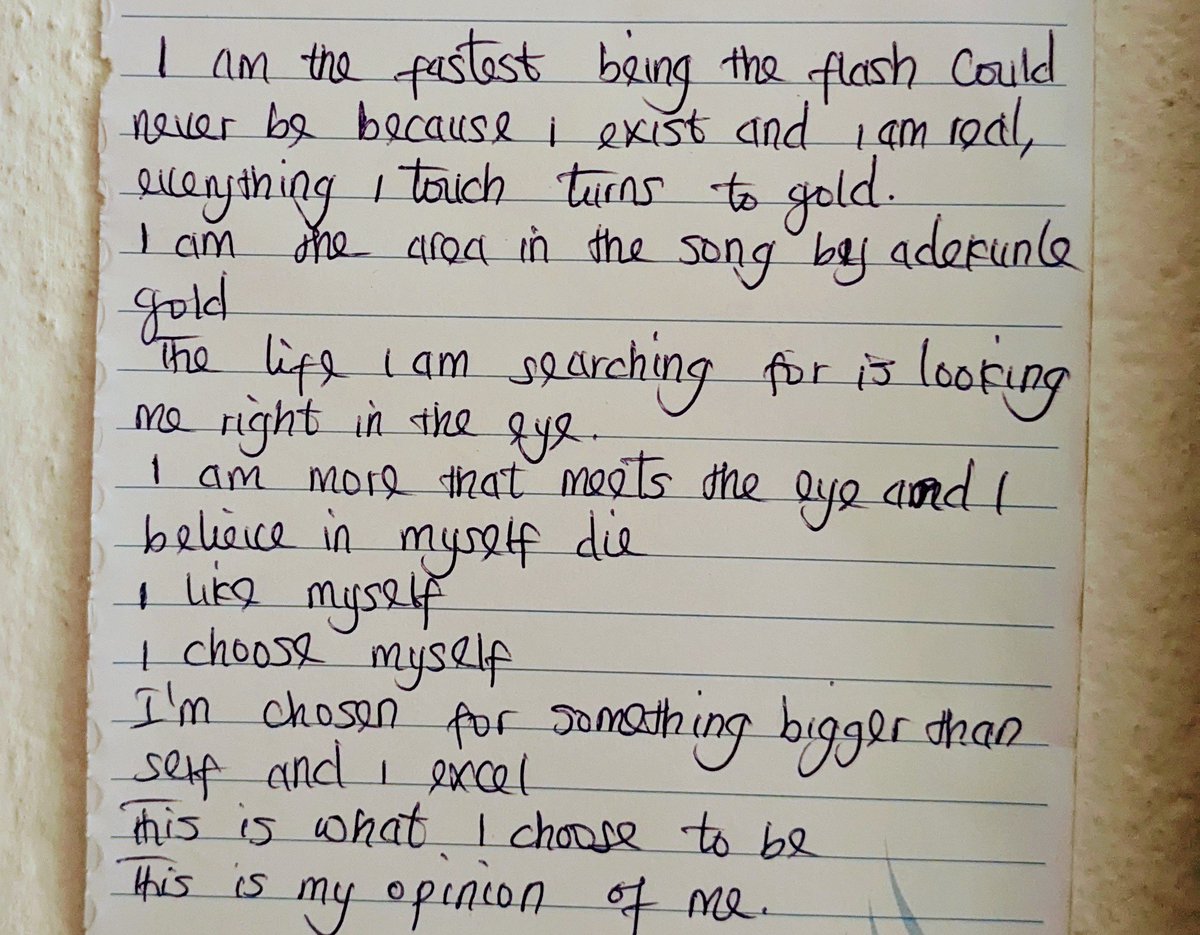 I am the fastest being the flash Could
never be because i exist and i am real,
everything I touch turns to gold.
I am the area in the song by adekunle
gold
The life I am searching for is looking
me right in the eye.
I am more that meets the eye and I
believe in myself die
I like myself
I choose myself
I'm chosen for something bigger than
self and I excel
This is what I choose to be
This is my opinion of me.